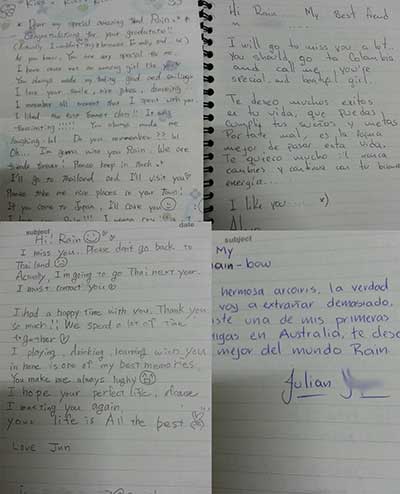 Dear my special amazing friend Rain
Congratulations for your graduate!!
I have never met an amazing girl like you.
You always made my feeling good and so laugh.
I love your smile, nice place, dancing.
I remember all moment that I spent with you.
I liked the
You always made me
laughing. lol Do you remember >> lol
Oh... I'm gonna miss you Rain. We are
friends forever! Please keep in touch
I'll go to Thailand and I'll visit you
Please take me nice places in your town!
If you come to Japan, I'll care you
Hi Rain My Best friend
I will go to miss you a lot.
You should go to Colombia
and call me, you're
special and beatiful girl.
Te deseo muchos exitos
en tu vida, que puedas
cumplir tus sueños y metas
Portate mal, es la forma
mejor de pasar esta vida.
Te quiero mucho nunca
cambies y continua con tu buena
energia...
I like you
subject
Hi! Rain
I miss you. Please don't go back to
Thailand
Actually, I'm going to go Thai next year.
I must contact you
I had a happy time with you. Thank you
so much!! We spend a lot of time
together
I playing, drinking, learning with you
in home is one of my best memories.
You make me always lughy
I hope your perfect life, please
I meeting you again.
your life is All the best
Love Jun
date
subject
My
ain-bow
hermosa arcoiris, la verdad
voy a extrañar demasiado.
ste una de mis primeras
igas en Australia, te dese
mejor del mundo Rain.
Julian